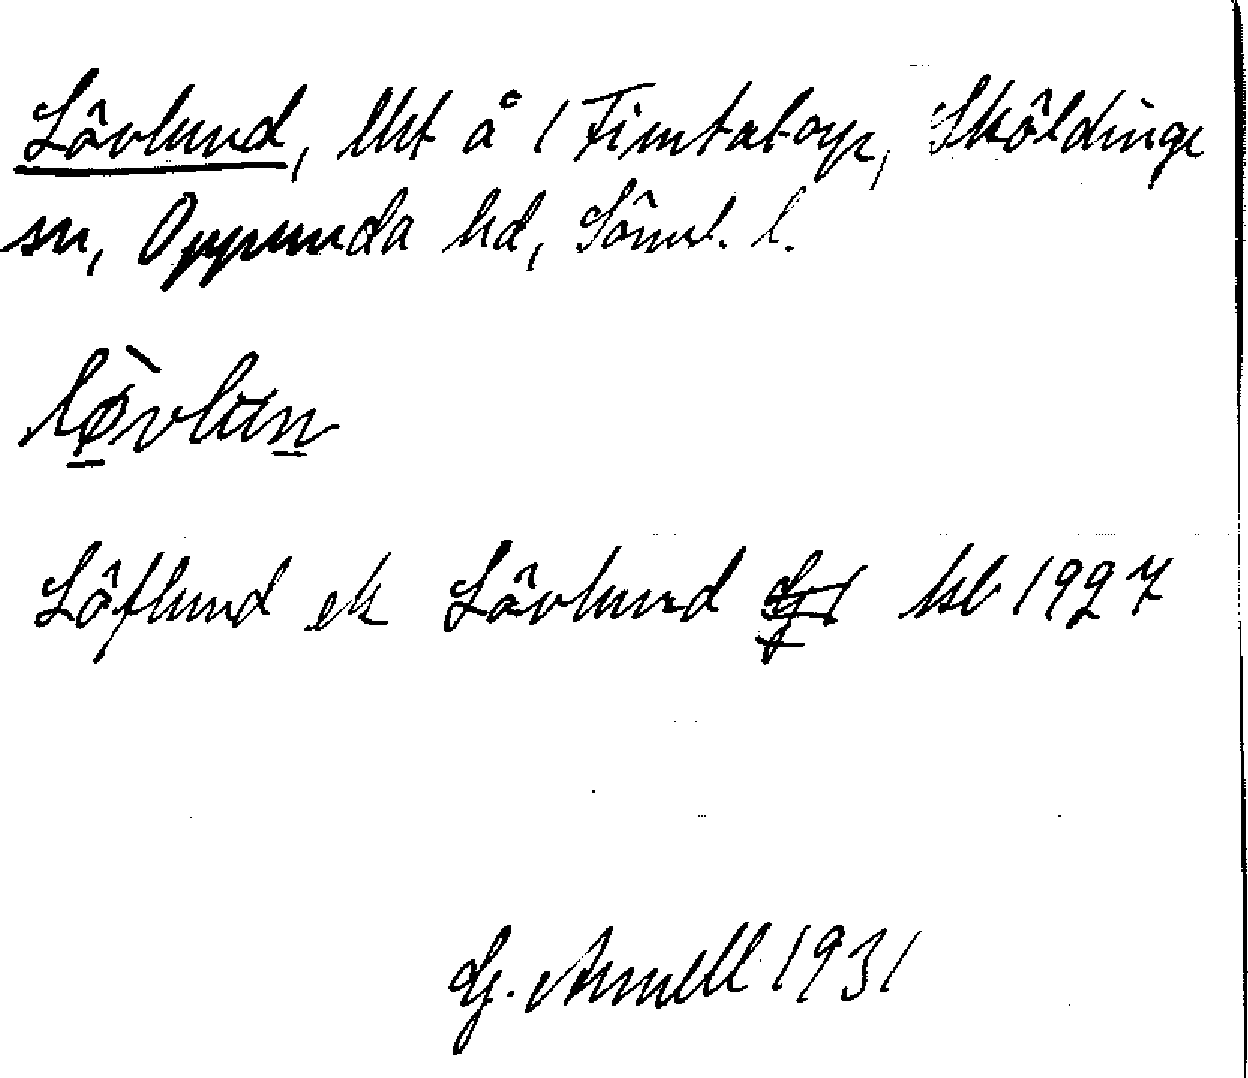 Lövlund, lht å 1 Fimtatorp, Sköldinge
sn, Oppunda hd, Söml. l.
lø̀vlun
Löflund ek Lövlund hsl 1927
G. Arnell 1931